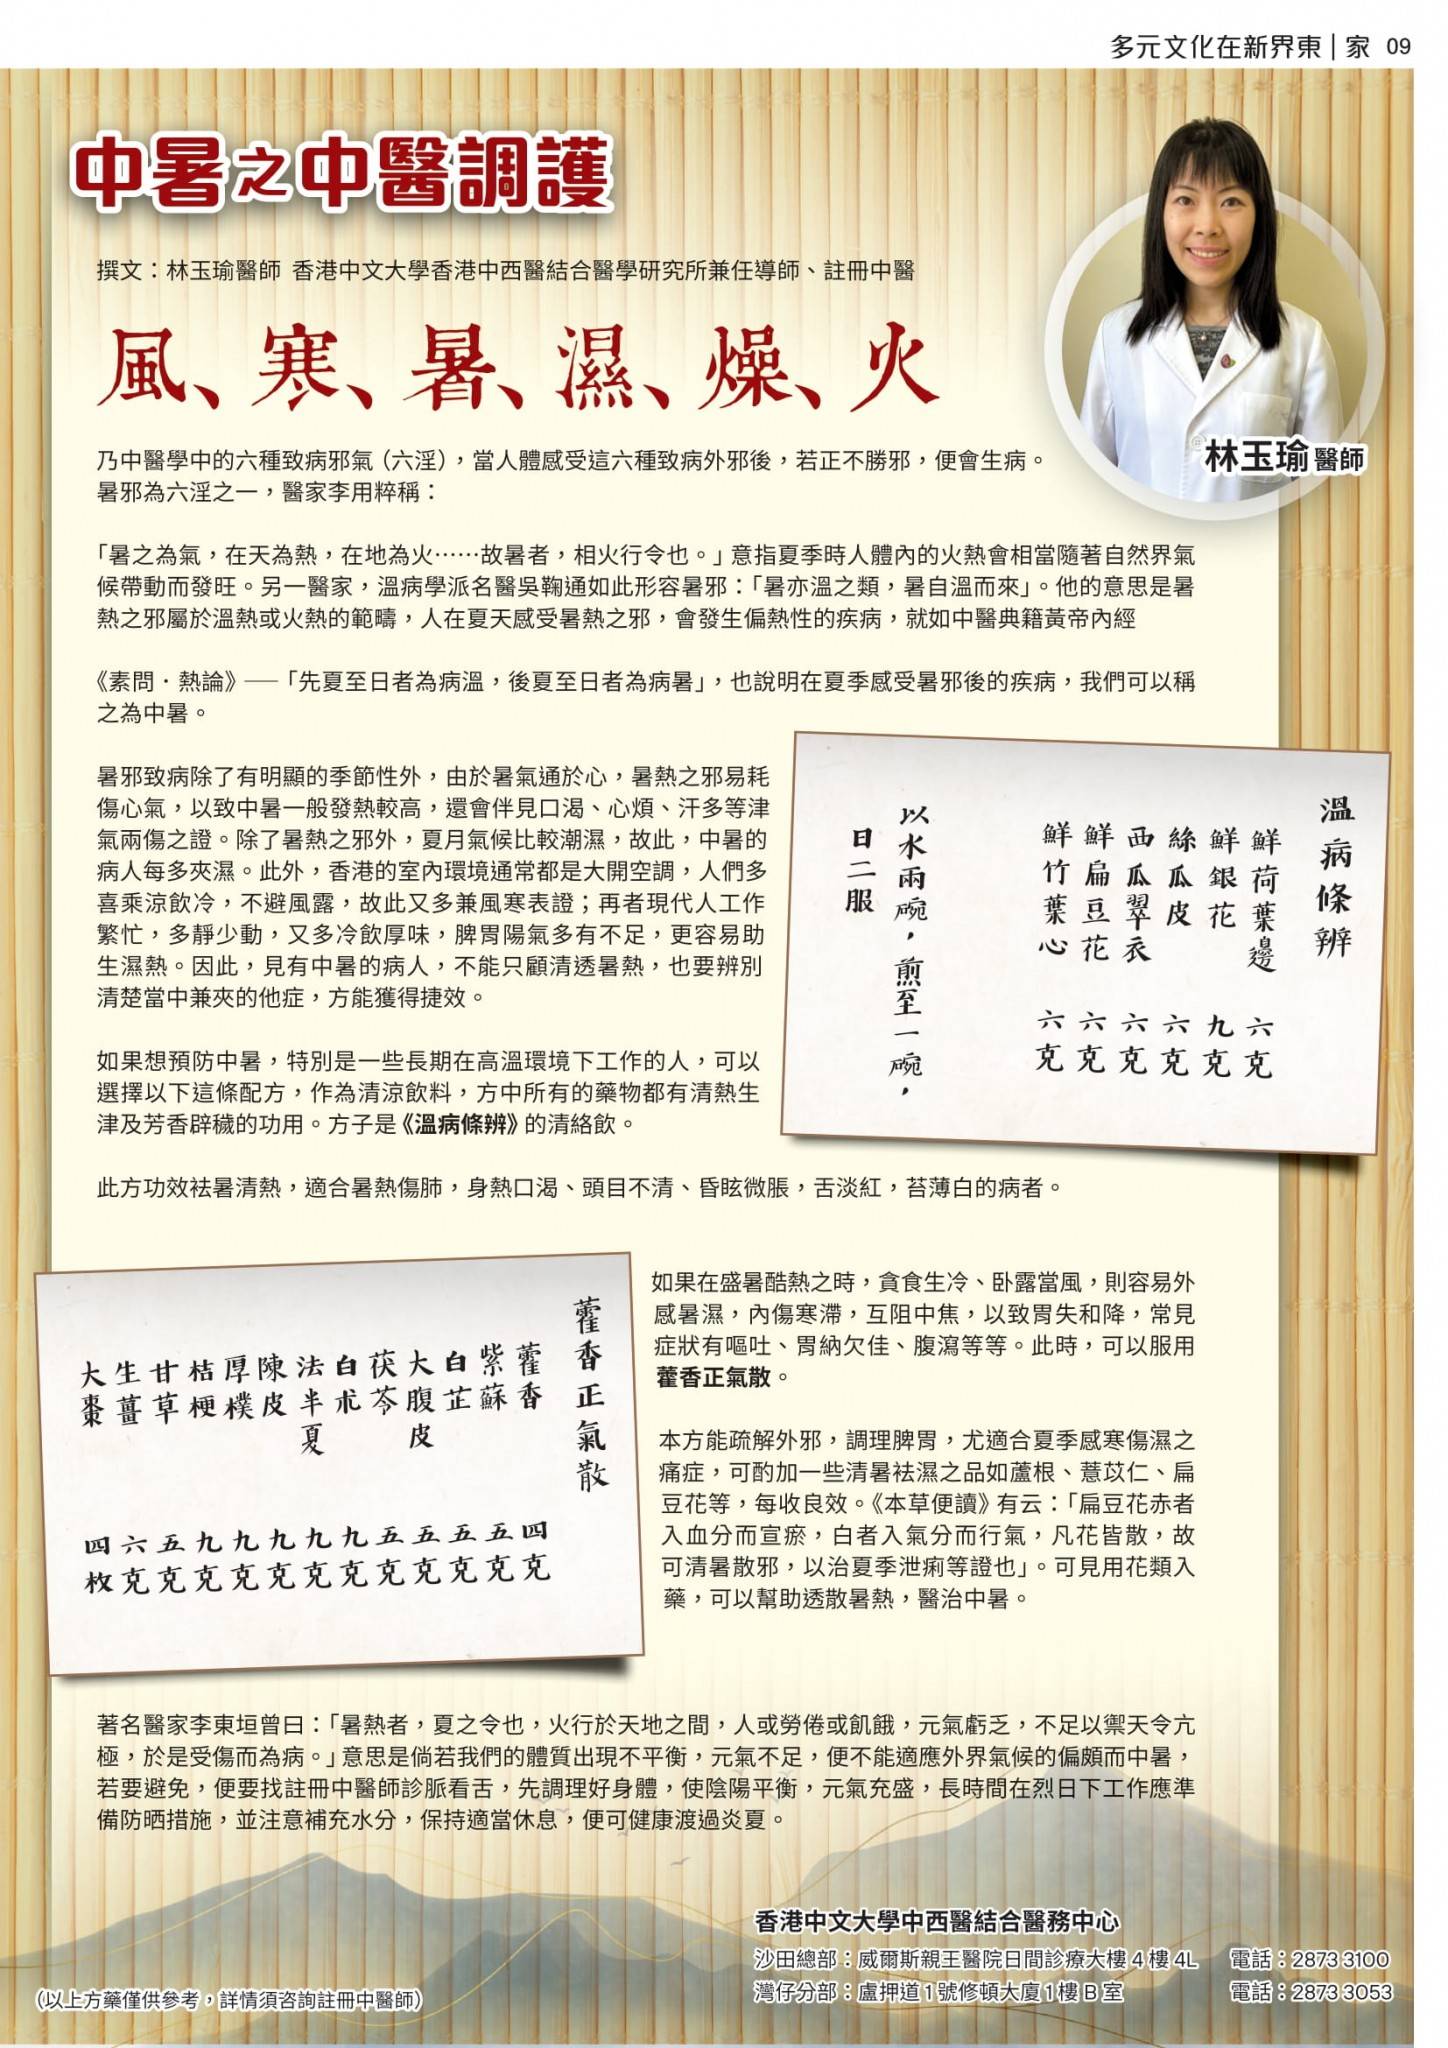 多元文化在新界東 | 家 09
中暑之中醫調護
撰文：林玉瑜醫師 香港中文大學香港中西醫結合醫學研究所兼任導師、註冊中醫
風、寒、暑、濕、燥、火
林玉瑜醫師
乃中醫學中的六種致病邪氣（六淫），當人體感受這六種致病外邪後，若正不勝邪，便會生病。
暑邪為六淫之一，醫家李用粹稱：
「暑之為氣，在天為熱，在地為火……故暑者，相火行令也。」意指夏季時人體內的火熱會相當隨著自然界氣
候帶動而發旺。另一醫家，溫病學派名醫吳鞠通如此形容暑邪：「暑亦溫之類，暑自溫而來」。他的意思是暑
熱之邪屬於溫熱或火熱的範疇，人在夏天感受暑熱之邪，會發生偏熱性的疾病，就如中醫典籍黃帝內經
《素問．熱論》──「先夏至日者為病溫，後夏至日者為病暑」，也說明在夏季感受暑邪後的疾病，我們可以稱
之為中暑。
暑邪致病除了有明顯的季節性外，由於暑氣通於心，暑熱之邪易耗
傷心氣，以致中暑一般發熱較高，還會伴見口渴、心煩、汗多等津
氣兩傷之證。除了暑熱之邪外，夏月氣候比較潮濕，故此，中暑的
病人每多夾濕。此外，香港的室內環境通常都是大開空調，人們多
喜乘涼飲冷，不避風露，故此又多兼風寒表證；再者現代人工作
繁忙，多靜少動，又多冷飲厚味，脾胃陽氣多有不足，更容易助
生濕熱。因此，見有中暑的病人，不能只顧清透暑熱，也要辨別
清楚當中兼夾的他症，方能獲得捷效。
如果想預防中暑，特別是一些長期在高溫環境下工作的人，可以
選擇以下這條配方，作為清涼飲料，方中所有的藥物都有清熱生
津及芳香辟穢的功用。方子是《溫病條辨》的清絡飲。
溫病條辨
鮮荷葉邊 六克
鮮銀花 九克
絲瓜皮 六克
西瓜翠衣 六克
鮮扁豆花 六克
鮮竹葉心 六克
以水兩碗，煎至一碗，
日二服
此方功效袪暑清熱，適合暑熱傷肺，身熱口渴、頭目不清、昏眩微脹，舌淡紅，苔薄白的病者。
藿香正氣散
藿香 四克
紫蘇 五克
白芷 五克
大腹皮 五克
茯苓 五克
白朮 九克
法半夏 九克
陳皮 九克
厚樸 九克
桔梗 九克
甘草 五克
生薑 六克
大棗 四枚
如果在盛暑酷熱之時，貪食生冷、卧露當風，則容易外
感暑濕，內傷寒滯，互阻中焦，以致胃失和降，常見
症狀有嘔吐、胃納欠佳、腹瀉等等。此時，可以服用
藿香正氣散。
本方能疏解外邪，調理脾胃，尤適合夏季感寒傷濕之
痛症，可酌加一些清暑袪濕之品如蘆根、薏苡仁、扁
豆花等，每收良效。《本草便讀》有云：「扁豆花赤者
入血分而宣瘀，白者入氣分而行氣，凡花皆散，故
可清暑散邪，以治夏季泄痢等證也」。可見用花類入
藥，可以幫助透散暑熱，醫治中暑。
著名醫家李東垣曾曰：「暑熱者，夏之令也，火行於天地之間，人或勞倦或飢餓，元氣虧乏，不足以禦天令亢
極，於是受傷而為病。」意思是倘若我們的體質出現不平衡，元氣不足，便不能適應外界氣候的偏頗而中暑，
若要避免，便要找註冊中醫師診脈看舌，先調理好身體，使陰陽平衡，元氣充盛，長時間在烈日下工作應準
備防晒措施，並注意補充水分，保持適當休息，便可健康渡過炎夏。
香港中文大學中西醫結合醫務中心
沙田總部：威爾斯親王醫院日間診療大樓 4 樓 4L 電話：2873 3100
灣仔分部：盧押道 1 號修頓大廈 1 樓 B 室 電話：2873 3053
（以上方藥僅供參考，詳情須咨詢註冊中醫師）